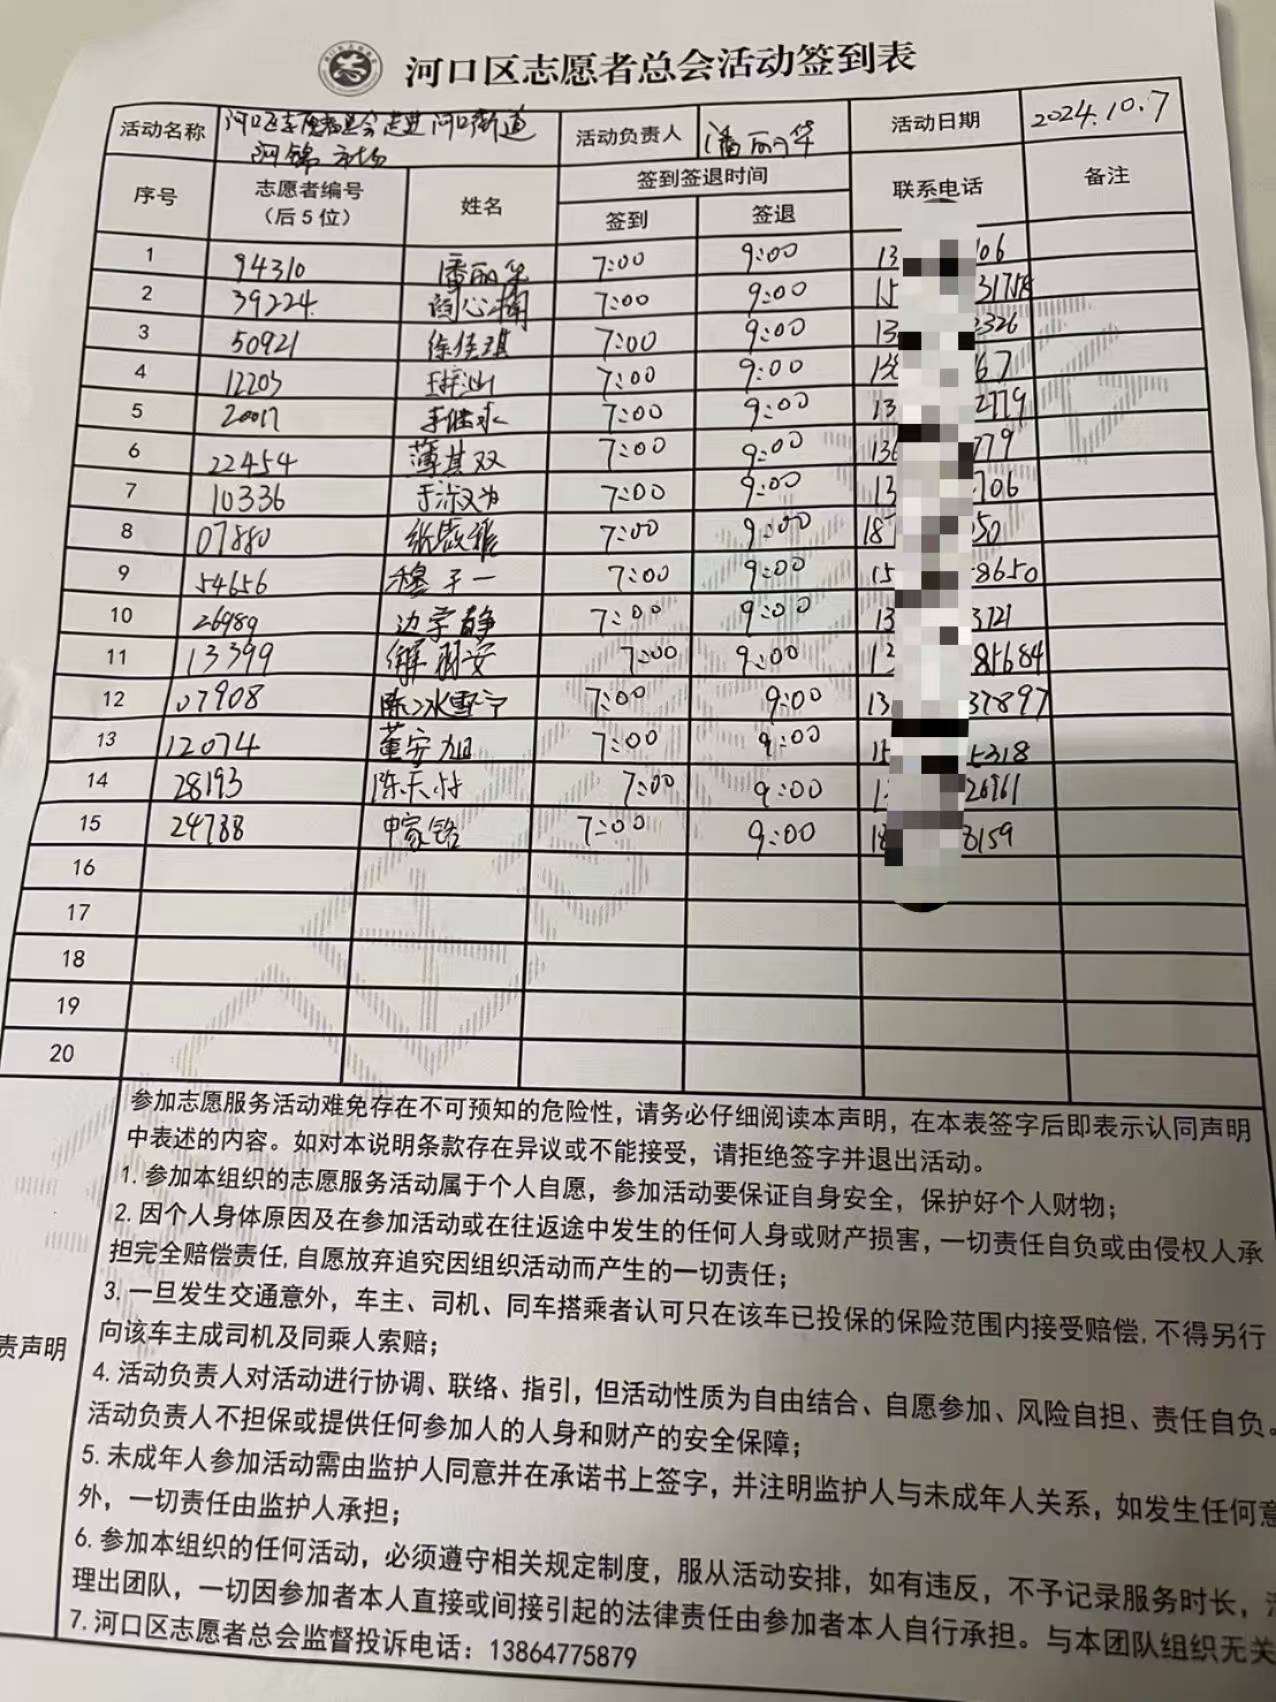 河口区志愿者总会活动签到表
活动名称 河口区志愿者总会走进河口街道 活动负责人 潘丽华 活动日期 2024.10.7
河锦市场
序号 志愿者编号 姓名 签到签退时间 联系电话 备注
（后5位） 签到 签退
1 94310 潘丽华 7:00 9:00 13 06
2 39224 7:00 9:00 15 3175
3 50921 徐佳琪 7:00 9:00 13 326
4 12203 7:00 9:00 67
5 20017 7:00 9:00 13 2779
6 22454 薄其双 7:00 9:00 136 779
7 10336 7:00 9:00 13 706
8 07880 7:00 9:00 18 50
9 54656 穆子一 7:00 9:00 15 8650
10 26989 边学静 7:00 9:00 13 3721
11 13399 解树安 7:00 9:00 85684
12 07908 陈冰雪宁 7:00 9:00 13 37897
13 12074 董安旭 7:00 9:00 15 5318
14 28193 7:00 9:00 26961
15 24788 申家铭 7:00 9:00 18 8159
16
17
18
19
20
参加志愿服务活动难免存在不可预知的危险性，请务必仔细阅读本声明，在本表签字后即表示认同声明
中表述的内容。如对本说明条款存在异议或不能接受，请拒绝签字并退出活动。
1.参加本组织的志愿服务活动属于个人自愿，参加活动要保证自身安全，保护好个人财物；
2.因个人身体原因及在参加活动或在往返途中发生的任何人身或财产损害，一切责任自负或由侵权人承
担完全赔偿责任,自愿放弃追究因组织活动而产生的一切责任；
3.一旦发生交通意外，车主、司机、同车搭乘者认可只在该车已投保的保险范围内接受赔偿,不得另行
向该车主成司机及同乘人索赔；
责声明
4.活动负责人对活动进行协调、联络、指引，但活动性质为自由结合、自愿参加、风险自担、责任自负。
活动负责人不担保或提供任何参加人的人身和财产的安全保障；
5.未成年人参加活动需由监护人同意并在承诺书上签字，并注明监护人与未成年人关系，如发生任何意
外，一切责任由监护人承担；
6.参加本组织的任何活动，必须遵守相关规定制度，服从活动安排，如有违反，不予记录服务时长，
理出团队，一切因参加者本人直接或间接引起的法律责任由参加者本人自行承担。与本团队组织无关
7.河口区志愿者总会监督投诉电话：13864775879